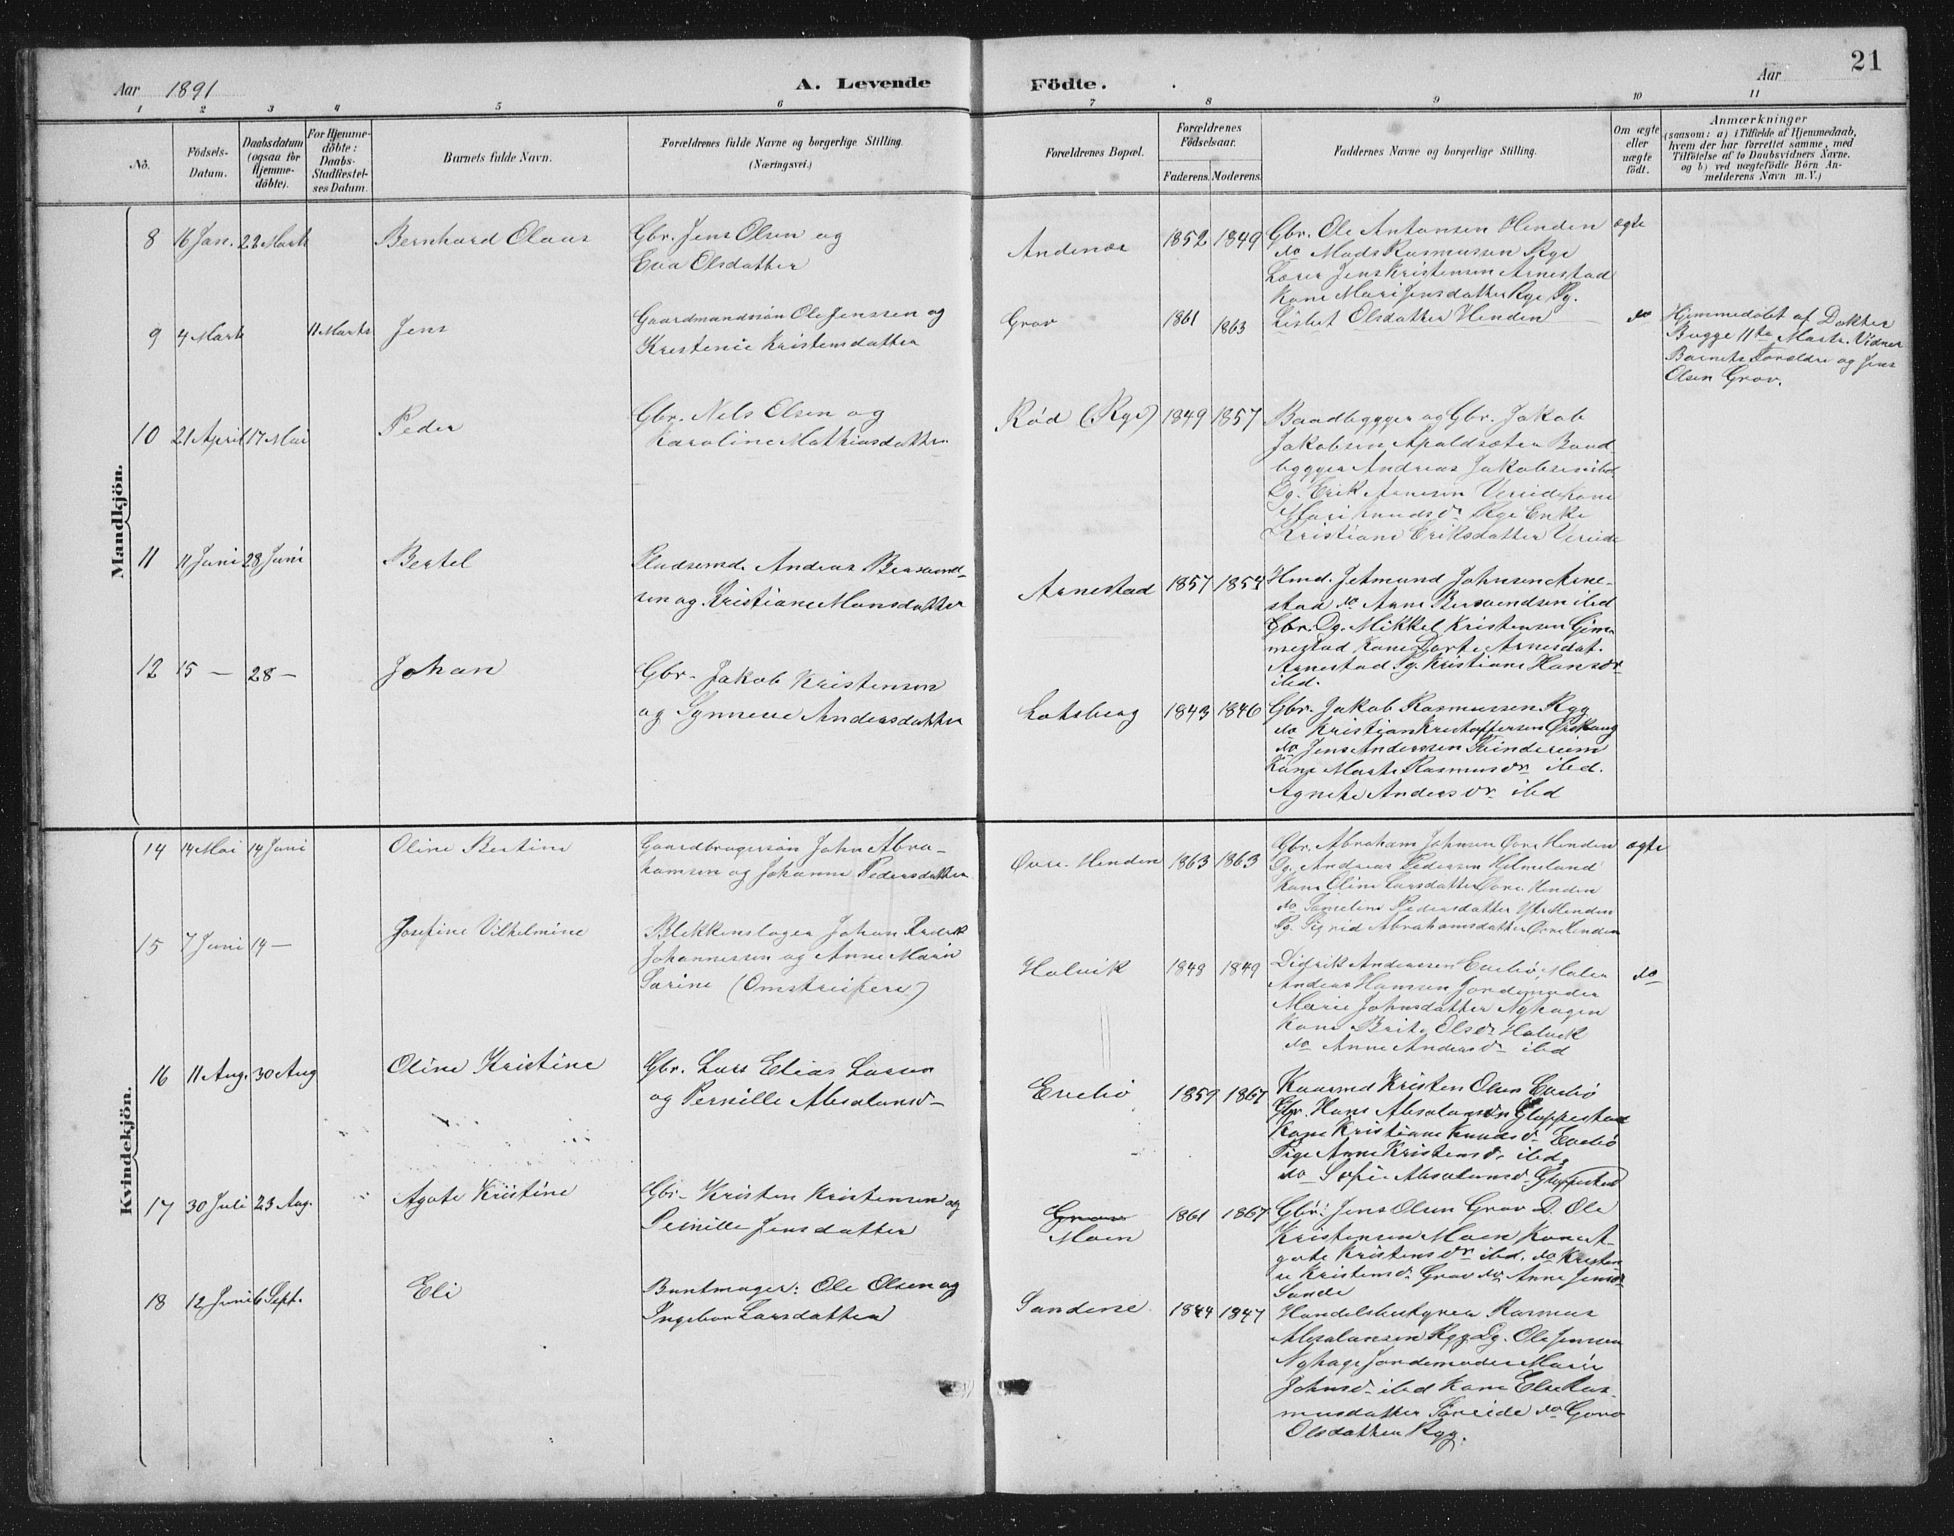 Aar 1891
A. Levende
Födte.
Aar
21
1 2 3 4 5 6 7 8 9 10 11
No.
Födsels-
Datum.
Daabsdatum
(ogsaa for
Hjemme-
döbte).
For Hjemme-
döbte:
Daabs-
Stadfæstel-
ses Datum.
Barnets fulde Navn.
Forældrenes fulde Navne og borgerlige Stilling.
(Næringsvei.)
Forældrenes Bopæl.
Forældrenes
Födselsaar.
Faderens. Moderens.
Faddernes Navne og borgerlige Stilling.
Om ægte
eller
uægte
födt.
Anmærkninger
(saasom: a) i Tilfælde af Hjemmedaab,
hvem der har forrettet samme, med
Tilföielse af to Daabsvidners Navne.
og b) ved uægtefödte Börn An-
melderens Navn m. V.)
Mandkjön.
8 16 Jan. 22 Marts Bernhard Olaus
Gbr. Jens Olsen og
Eva Olsdatter
Andenæs 1852 1849
Gbr. Ole Antonsen Henden
do Mads Rasmussen Rye
Lærer Jens Kristensen Arnestad
Kone Mari Jensdatter Rye Pg.
Lisbet Olsdatter Henden
ægte
9 4 Marts 11 Marts Jens
Gaardmandssön Ole Jenssen og
Krestenie Kristensdatter
Grov 1861 1863
do
Hjemmedöbt af Dokter
Bugge 11te Marts. Vidner
Barnets Forældre og Jens
Olsen Grov.
10 21 April 17 Mai Peder
Gbr. Nels Elsen og
Karoline Mathiasdatter
Rød (Rye) 1849 1857
Baadbygger og Gbr. Jakob
Jakobsen Apaldsæter Baad
bygger Andreas Jakobsen ibd
Og. Erik Arnesen Vereide Kone
Mari Knudsdr Rye Enke
Kristiane Eriksdatter Vereide
11 11 Juni 28 Juni Bertel
Pladsemd. Andreas Bersvend-
sen og Kristiane Monsdatter
Arnestad 1857 1854
Hmd. Jetmund Johnsen Arne-
stad do Arne Bersvendsen ibd
Gbr. Og. Mikkel Kristensen Gim-
mestad Kone Dorte Arnesdat.
Arnestad Pg. Kristiane Hansdr
ibd.
12 15 — 28 — Johan
Gbr. Jakob Kristensen
og Synneve Andersdatter
Lotsberg 1843 1846
Gbr. Jakob Rasmussen Ryg
do Kristian Kristoffersen
do Jens Anderssen
Kone Marte Rasmusdr ibd.
Agnete Andersdr ibd
Kvindekjön.
14 14 Mai 14 Juni Oline Bertine
Gaardbrugersön John Abra-
hamsen og Johanne Pedersdatter
Övre Henden 1863 1863
Gbr. Abraham Johnsen Övre Henden
Og. Andreas Pedersen Helmeland
Kone Oline Larsdatter Övre Henden
do Sameline Pedersdatter Ytre Henden
Pg. Sigrid Abrahamsdatter Övre Henden
ægte
15 7 Juni 14 — Josefine Vilhelmine
Blekkenslager Johan Fredrik
Johannessen og Anne Marie
Sarine (Omstreifere)
Holvik 1848 1849
Didrik Anderssen Evebö, Maler
Andreas Hansen Jordemoder
Marie Johnsdatter Nyhagen
Kone Brite Olsdr Holvik
do Anne Andersdr ibd
do
16 11 Aug. 30 Aug Oline Kristine
Gbr. Lars Elias Larsen
og Pernille Absalonsd—
Evebö 1859 1867
Kaarmd Kristen Olsen Evebö
Gbr. Hans Absalonsen Gloppestad
Kone Kristiane Knudsdr Evebö
Pige Anne Kristensdr ibd.
do Sofie Absalonsdr Gloppestad
17 30 Juli 23 Aug. Agate Kristine
Gbr. Kristen Kristensen og
Pernille Jensdatter
Grov
Moen 1861 1867
Gbr. Jens Olsen Grov D. Ole
Kristensen Moen Kone A-
gate Kristensdr ibd. do Kresten-
e Kristensdr Grov do Anne Jensdr
Sande
18 12 Juni 6 Sept. Eli
Buntmager: Ole Olsen og
Ingebor Larsdatter
Sandene 1844 1847
Handelsbestyrer Rasmus
Absalonsen Ryg Og. Ole Jensen
Nyhage Jordemoder Marie
Johnsd— ibd Kone Else Ras-
musdatter Söreide do Goro
Olsdatter Ryg.